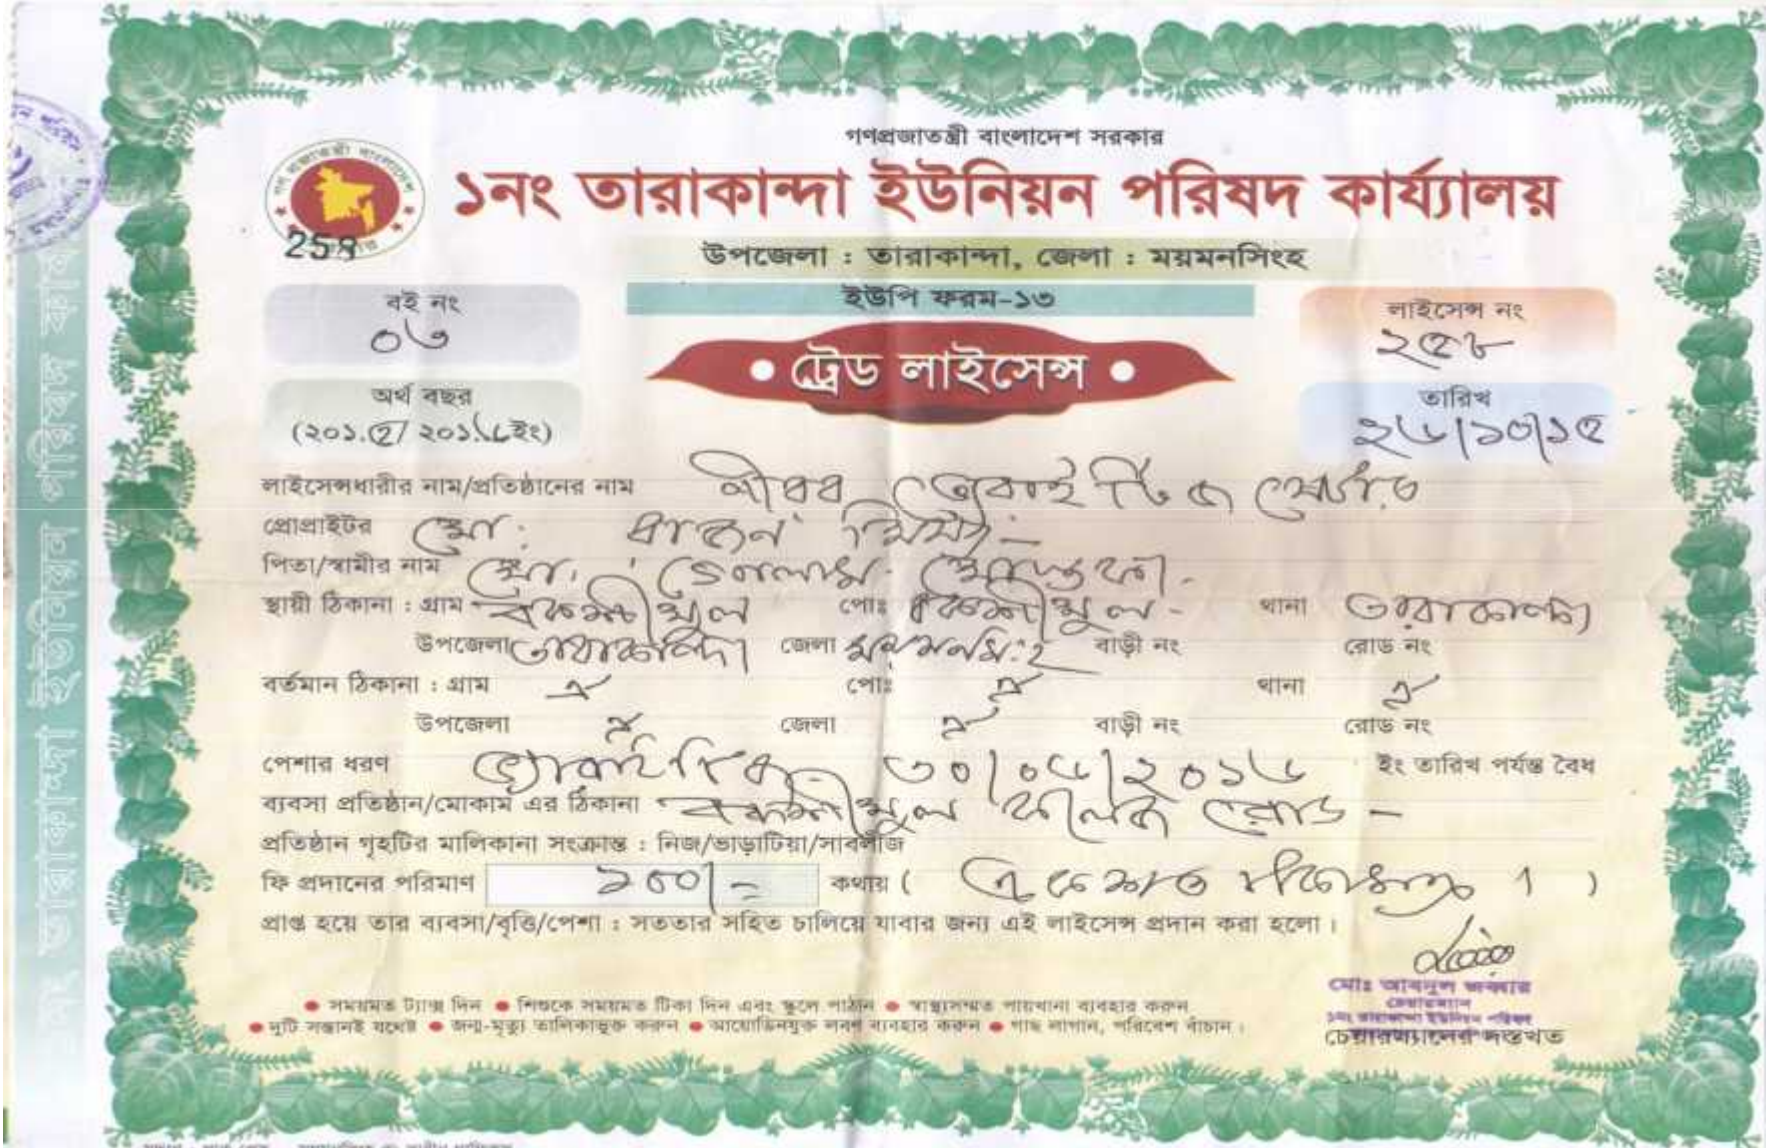 গণপ্রজাতন্ত্রী বাংলাদেশ সরকার
১নং তারাকান্দা ইউনিয়ন পরিষদ কার্য্যালয়
258
উপজেলা : তারাকান্দা, জেলা : ময়মনসিংহ
ইউপি ফরম-১৩
বই নং
০৩
লাইসেন্স নং
২৫৮
ট্রেড লাইসেন্স
অর্থ বছর
(২০১৫/ ২০১৬ইং)
তারিখ
২৬/১০/১৫
লাইসেন্সধারীর নাম/প্রতিষ্ঠানের নাম নীরব ভেরাইটিজ ষ্টোর
প্রোপ্রাইটর মো: মিয়া-
পিতা/স্বামীর নাম মো. গোলাম মোস্তফা.
স্থায়ী ঠিকানা : গ্রাম বকশীমুল পোঃ বকশীমুল- থানা তারাকান্দা
উপজেলা তারাকান্দা জেলা ময়মনসিংহ বাড়ী নং রোড নং
বর্তমান ঠিকানা : গ্রাম ঐ পোঃ ঐ থানা ঐ
উপজেলা ঐ জেলা ঐ বাড়ী নং রোড নং
পেশার ধরণ ৩০/০৬/২০১৬ ইং তারিখ পর্যন্ত বৈধ
ব্যবসা প্রতিষ্ঠান/মোকাম এর ঠিকানা বকশীমুল কলেজ রোড-
প্রতিষ্ঠান গৃহটির মালিকানা সংক্রান্ত : নিজ/ভাড়াটিয়া/সাবলীজ
ফি প্রদানের পরিমাণ ১০০/= কথায় ( একশত টাকা মাত্র। )
প্রাপ্ত হয়ে তার ব্যবসা/বৃত্তি/পেশা : সততার সহিত চালিয়ে যাবার জন্য এই লাইসেন্স প্রদান করা হলো।
মোঃ আবদুল জব্বার
চেয়ারম্যান
১নং তারাকান্দা ইউনিয়ন পরিষদ
চেয়ারম্যানের দস্তখত
● সময়মত ট্যাক্স দিন ● শিশুকে সময়মত টিকা দিন এবং স্কুলে পাঠান ● স্বাস্থ্যসম্মত পায়খানা ব্যবহার করুন
● দুটি সন্তানই যথেষ্ট ● জন্ম-মৃত্যু তালিকাভুক্ত করুন ● আয়োডিনযুক্ত লবণ ব্যবহার করুন ● গাছ লাগান, পরিবেশ বাঁচান।